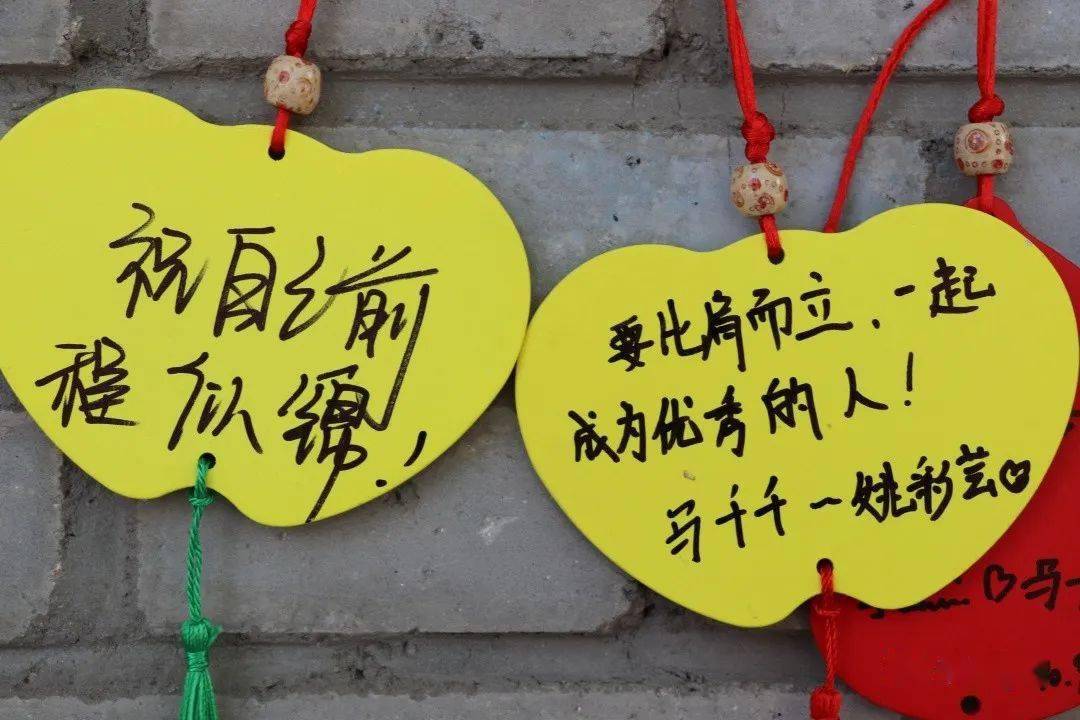 祝自己前
程似锦!
要比肩而立、一起
成为优秀的人!
马千千~姚彩芸♡
♡马